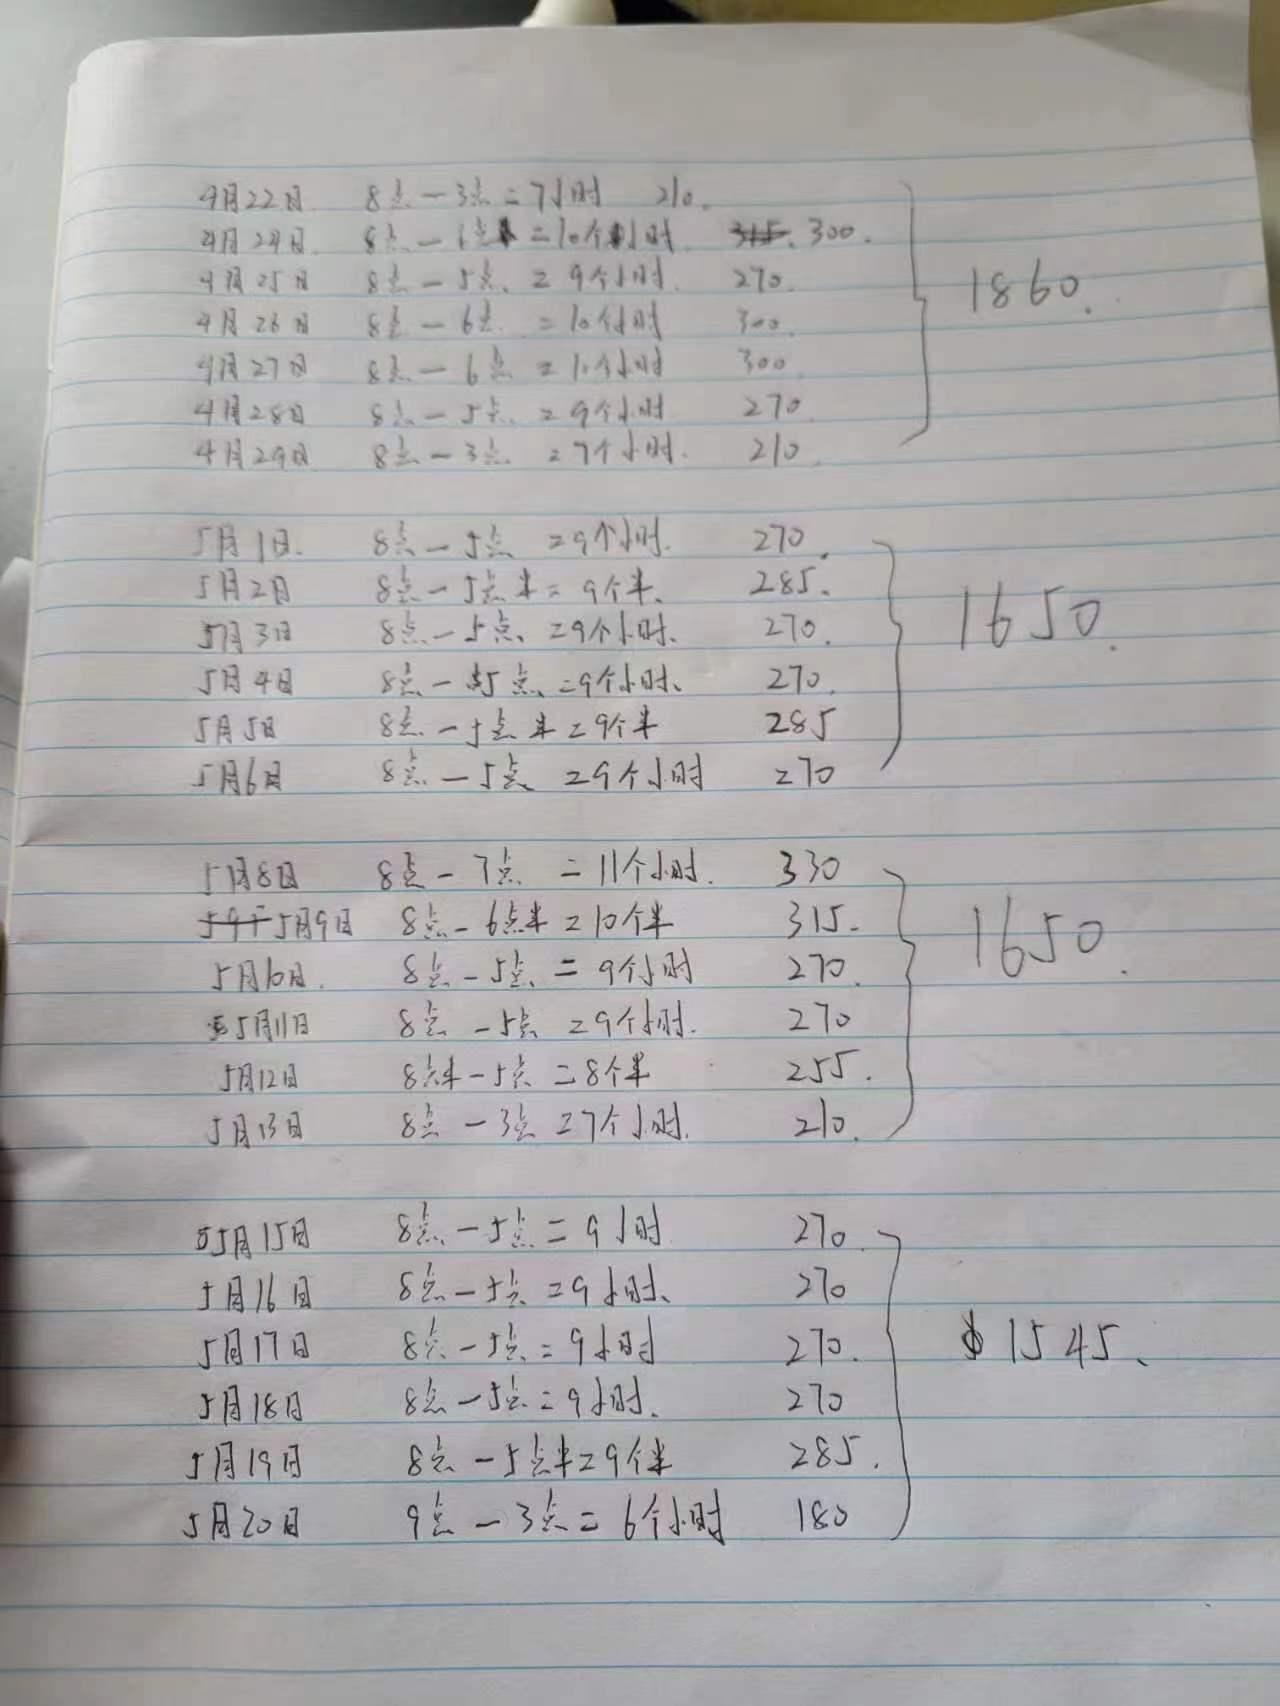 4月22日 8点-3点=7小时 210.
4月24日. 8点-6点=10个小时. 315. 300.
4月25日 8点-5点.=9个小时. 270.
4月26日 8点-6点.=10个小时 300.
4月27日 8点-6点=10个小时 300
4月28日 8点-5点.=9个小时 270.
4月29日 8点-3点=7个小时. 210.
1860.
5月1日. 8点-5点=9个小时. 270.
5月2日 8点-5点半=9个半. 285.
5月3日 8点-5点.=9个小时. 270.
5月4日 8点-5点.=9个小时. 270.
5月5日 8点-5点半=9个半 285
5月6日 8点-5点=9个小时 270
1650.
5月8日 8点-7点=11个小时. 330
5月9日 8点-6点半=10个半 315.
5月10日. 8点-5点.=9个小时 270.
5月11日 8点-5点=9个小时. 270
5月12日 8点半-5点=8个半 255.
5月13日 8点-3点=7个小时. 210.
1650.
5月15日 8点-5点=9小时 270.
5月16日 8点-5点=9小时. 270
5月17日 8点-5点=9小时 270.
5月18日 8点-5点=9小时. 270
5月19日 8点-5点半=9个半 285.
5月20日 9点-3点=6个小时 180
1545.